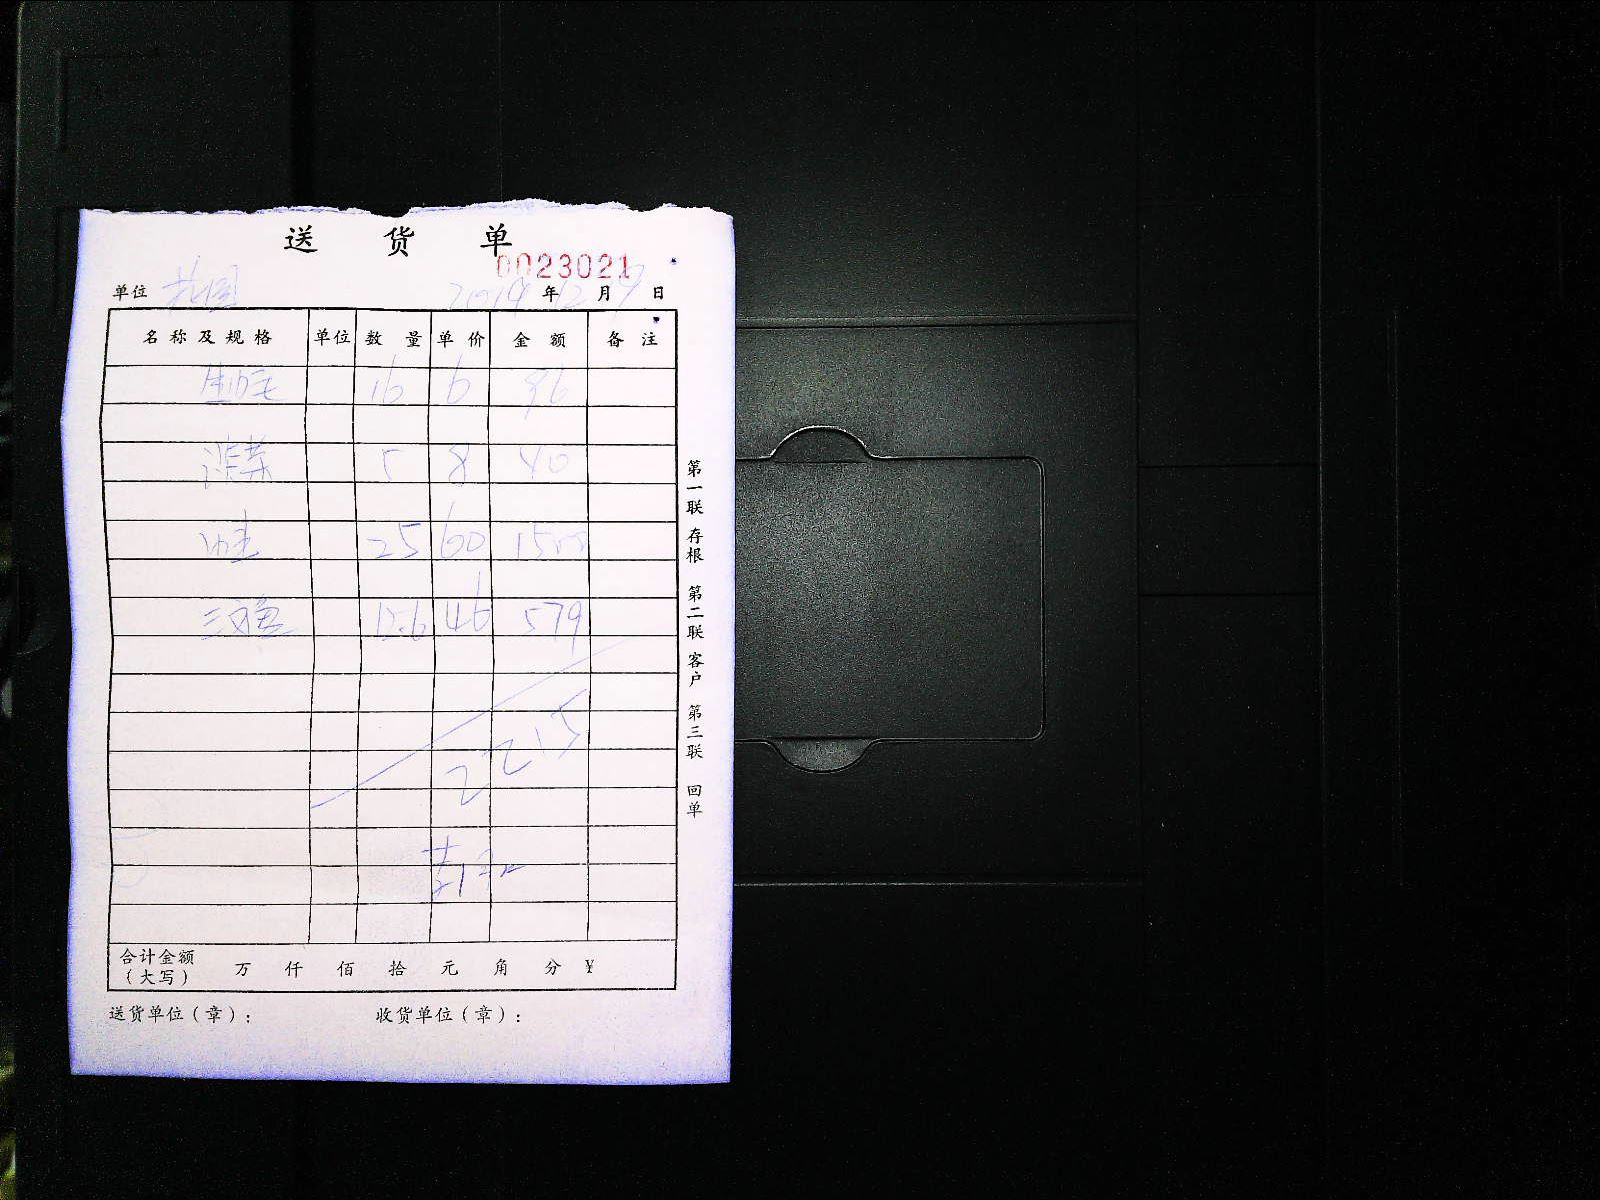 送 货 单
0023021
单位 2019 年 12 月 9 日
名称及规格 单位 数量 单价 金额 备注
16 6 96
5 8 40
25 60 1500
三文鱼 12.6 46 579
2215
合计金额(大写) 万 仟 佰 拾 元 角 分 ¥
送货单位(章): 收货单位(章):
第一联 存根 第二联 客户 第三联 回单